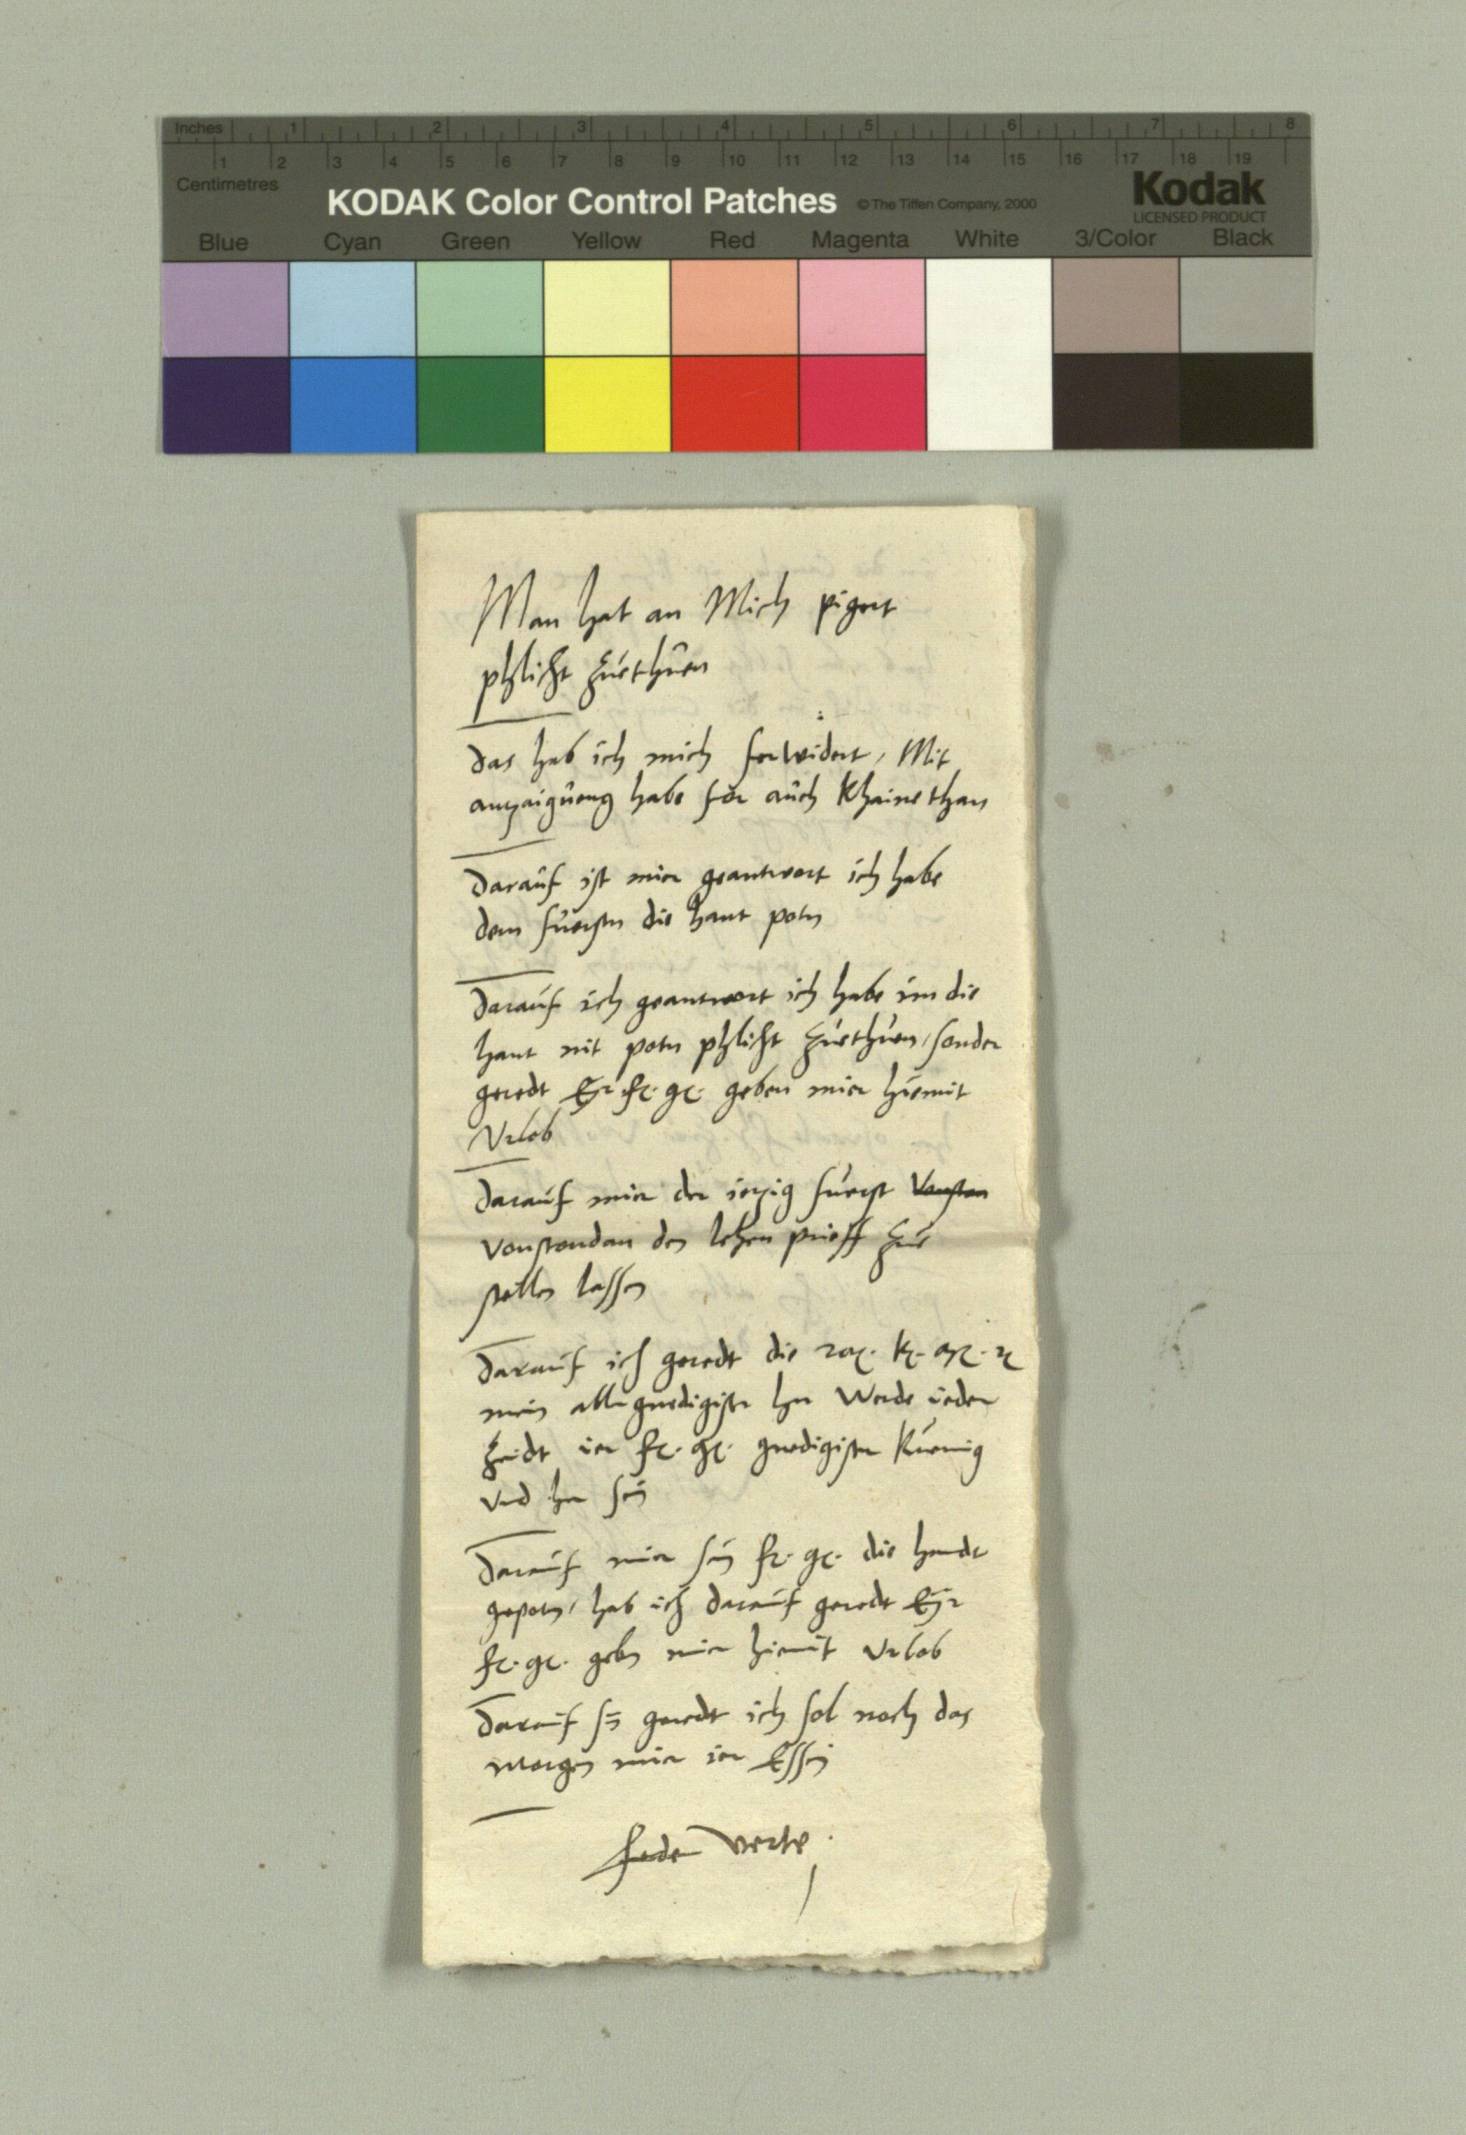 Inches 1 2 3 4 5 6 7 8
1 2 3 4 5 6 7 8 9 10 11 12 13 14 15 16 17 18 19
Centimetres
KODAK Color Control Patches © The Tiffen Company, 2000 Kodak
LICENSED PRODUCT
Blue Cyan Green Yellow Red Magenta White 3/Color Black
Man hat an Mich pigert
phlicht zuethuen
das hab ich mich ferwidert, Mit
anzaigueng habe for auch khaine than
darauf ist mier geantwort ich habe
dem fuersten die hant potn
darauf ich geantwort ich habe im die
hant nit potn phlicht zuethuen, sonder
geredt Er fr. gr. geben mier hiemit
Vrlob
darauf mier der iezig fuerst
den lehen prieff zue
stellen lassen
darauf ich geredt die
mein aller gnedigister her Werde ieder
zeidt ier fr. gr. gnedigister Kuenig
vnd her sein
darauf mier sein fr. gr. die handt
gepotn, hab ich darauf geredt Eyr
fr. gr. gebn mier hiemit Vrlob
darauf geredt ich sol noch das
Morgen mier Essen
verte